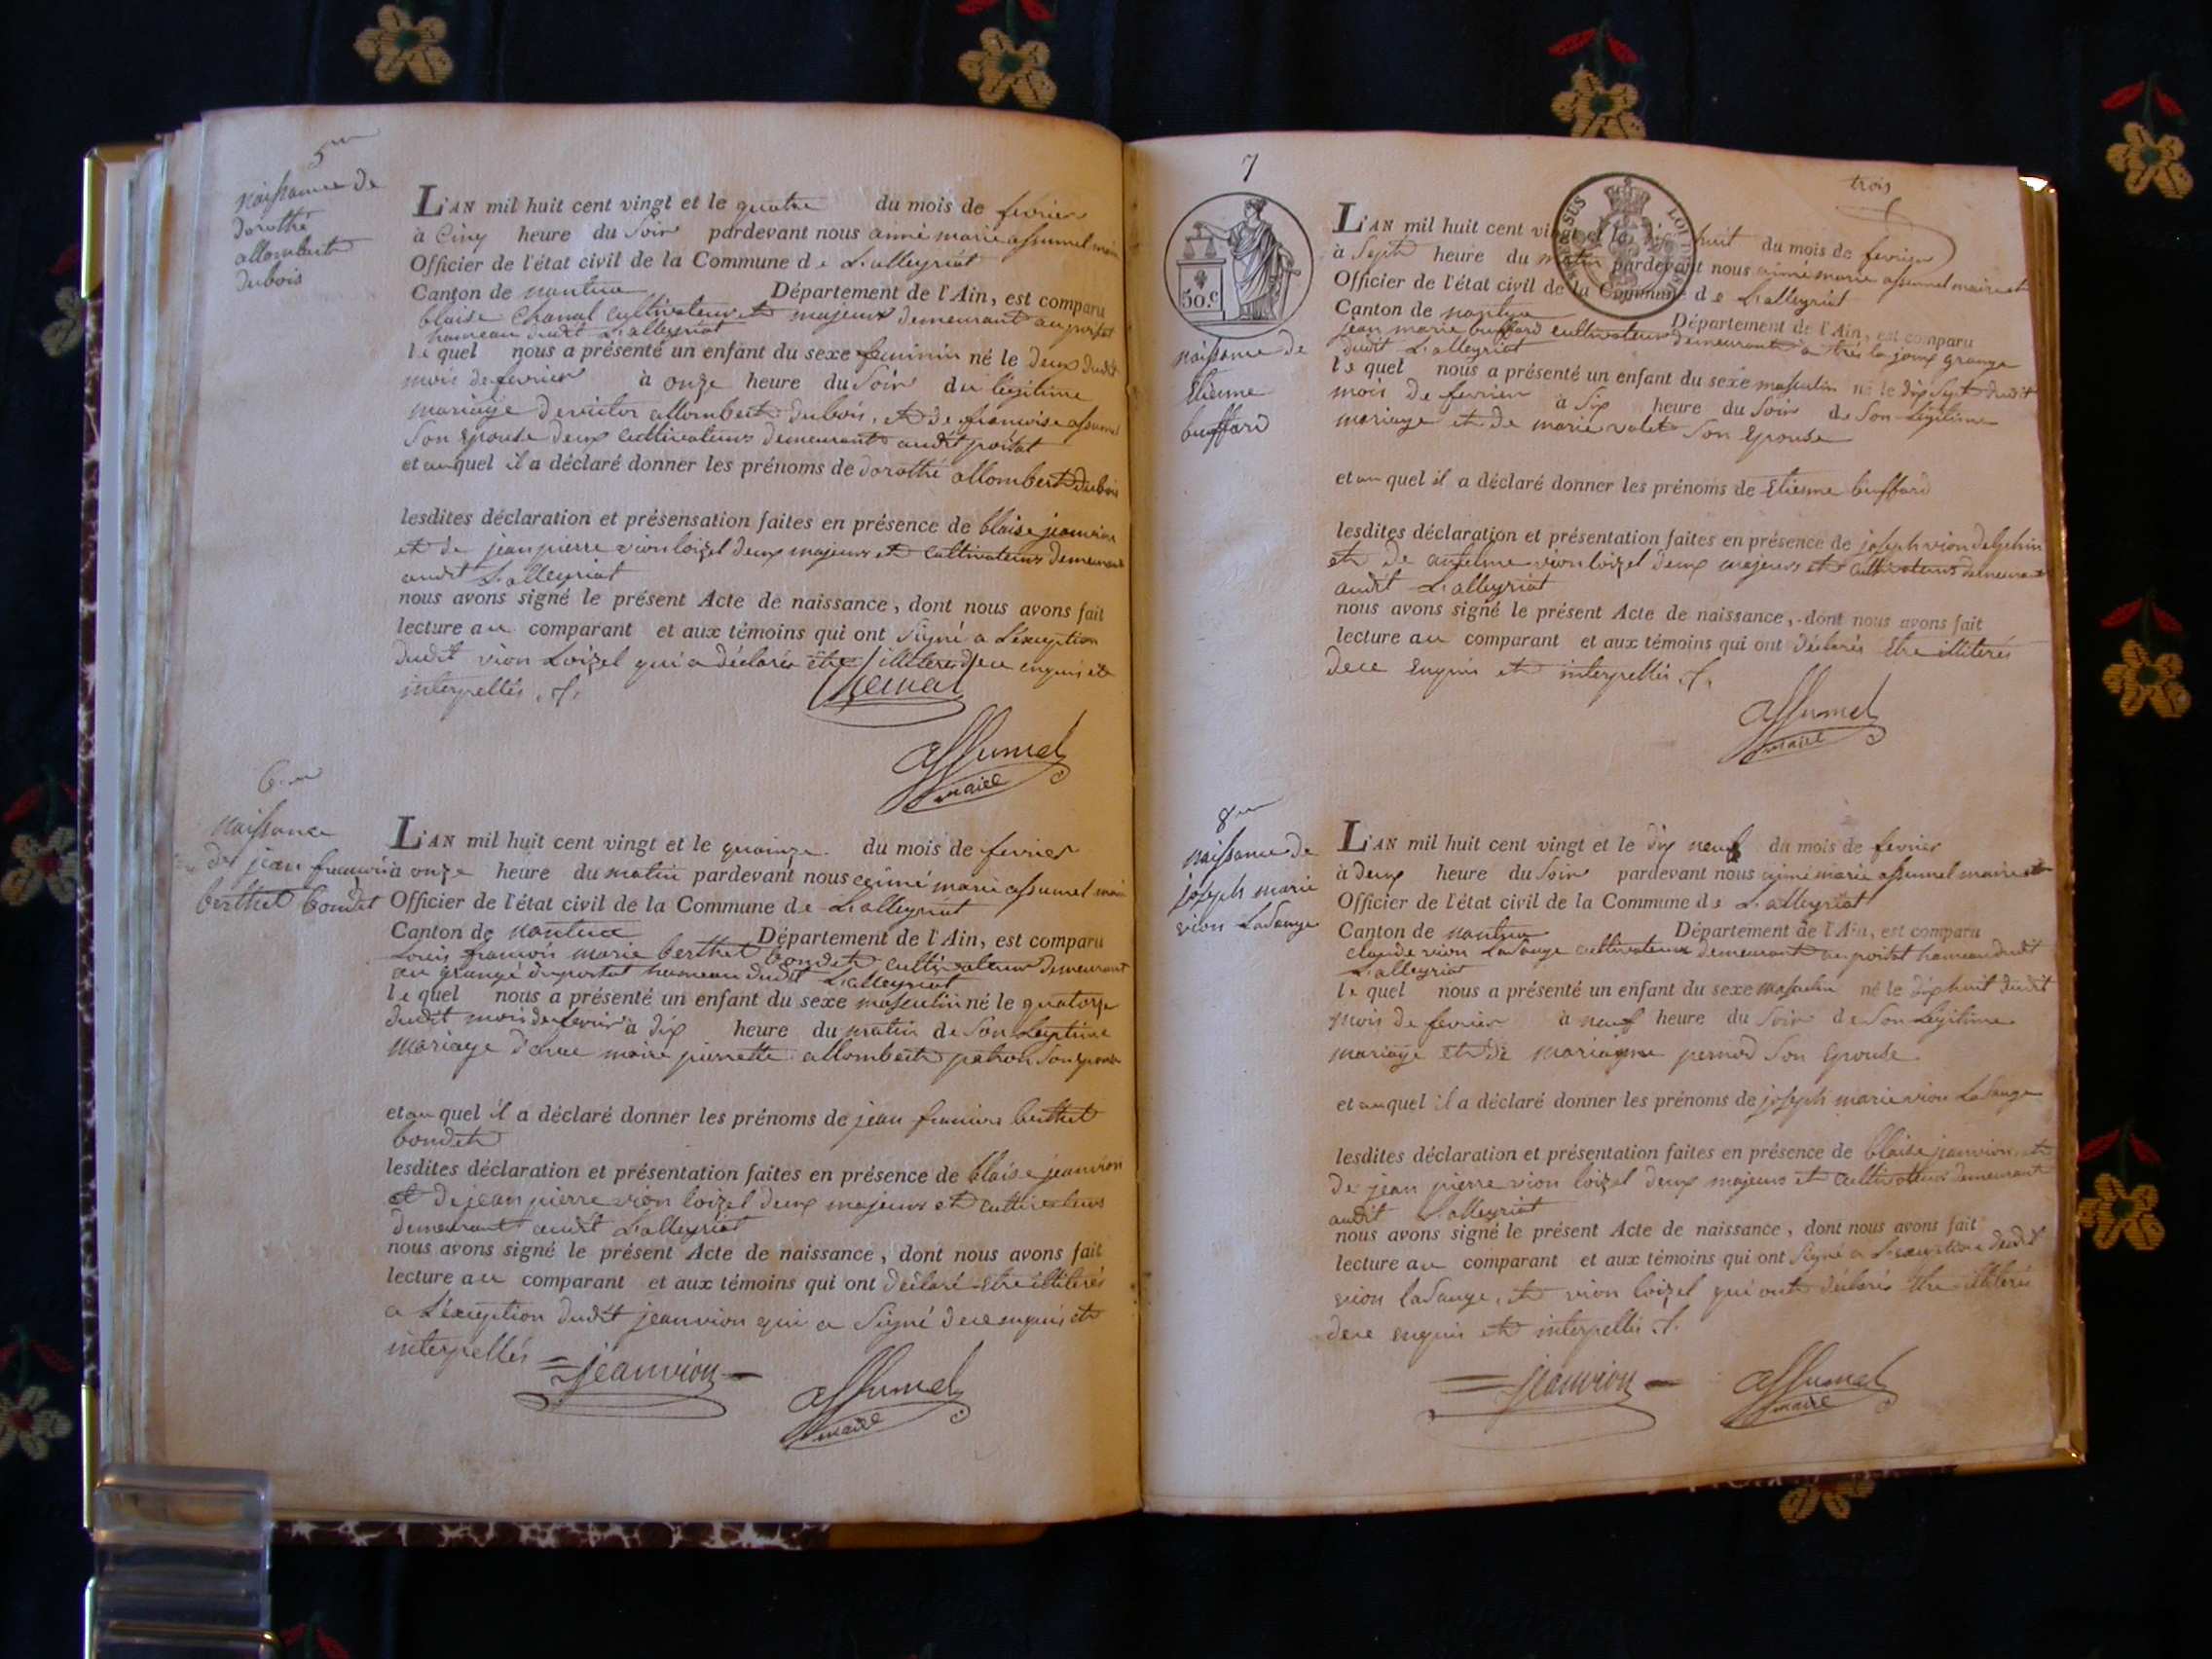 5me
naissance de
dorothé
allombert
dubois
L'AN mil huit cent vingt et le quatre du mois de fevrier
à Cinq heure du Soir pardevant nous aimé marie assumel maire
Officier de l'état civil de la Commune de L'alleyriat
Canton de nantua Département de l'Ain, est comparu
blaise Chanal cultivateur et majeur demeurant au portat
hameau dudit L'alleyriat
lequel nous a présenté un enfant du sexe feminin né le deux dudit
mois de fevrier à onze heure du Soir du légitime
mariage de victor allombert dubois, et de francoise assumel
Son Epouse deux cultivateurs demeurant audit portat
et auquel il a déclaré donner les prénoms de dorothé allombert dubois
lesdites déclaration et présensation faites en présence de blaise jeanvion
et de jean pierre vion loizel deux majeurs et cultivateurs demeurant
audit L'alleyriat
nous avons signé le présent Acte de naissance, dont nous avons fait
lecture au comparant et aux témoins qui ont Signé a L'exception
dudit vion Loizel qui a déclaré être illiteré de ce enquis et
interpellés
Chanal
assumel
maire
6me
naissance
de jean francois
berthet bondet
L'AN mil huit cent vingt et le quainze du mois de fevrier
à onze heure du matin pardevant nous aimé marie assumel maire
Officier de l'état civil de la Commune de L'alleyriat
Canton de nantua Département de l'Ain, est comparu
Louis francois marie berthet bondet cultivateur demeurant
au grangé du portat hameau dudit L'alleyriat
lequel nous a présenté un enfant du sexe masculin né le quatorze
dudit mois de fevrier à dix heure du matin de Son Legitime
mariage pierrette allombert patron Son Epouse
et auquel il a déclaré donner les prénoms de jean francois berthet
bondet
lesdites déclaration et présentation faites en présence de blaise jeanvion
et de jean pierre vion loizel deux majeurs et cultivateurs
demeurant audit L'alleyriat
nous avons signé le présent Acte de naissance, dont nous avons fait
lecture au comparant et aux témoins qui ont déclaré Etre illiterés
a L'éxception dudit jeanvion qui a Signé de ce enquis et
interpellés
jeanvion
assumel
maire
7
trois
50.c
LOI
naissance de
Etienne
buffard
L'AN mil huit cent vingt et le dix huit du mois de fevrier
à Sept heure du matin pardevant nous aimé marie assumel maire et
Officier de l'état civil de la Commune de L'alleyriat
Canton de nantua Département de l'Ain, est comparu
jean marie buffard cultivateur demeurant a très la joux grange
dudit L'alleyriat
lequel nous a présenté un enfant du sexe masculin né le dix Sept dudit
mois de fevrier à Six heure du Soir de Son Légitime
mariage et de marie valet Son Epouse
et auquel il a déclaré donner les prénoms de Etienne buffard
lesdites déclaration et présentation faites en présence de joseph vion delphin
et de anselme vion loizel deux majeurs et cultivateurs demeurant
audit L'alleyriat
nous avons signé le présent Acte de naissance, dont nous avons fait
lecture au comparant et aux témoins qui ont déclarés Etre illiterés
de ce Enquis et interpellés
assumel
maire
8me
naissance de
joseph marie
vion Lasauge
L'AN mil huit cent vingt et le dix neuf du mois de fevrier
à deux heure du Soir pardevant nous aimé marie assumel maire et
Officier de l'état civil de la Commune de L'alleyriat
Canton de nantua Département de l'Ain, est comparu
claude vion Lasauge cultivateur demeurant au portat hameau dudit
L'alleyriat
lequel nous a présenté un enfant du sexe masculin né le dix huit dudit
mois de fevrier à neuf heure du Soir de Son Légitime
mariage et de pernod Son Epouse
et auquel il a déclaré donner les prénoms de joseph marie vion Lasauge
lesdites déclaration et présentation faites en présence de blaise jeanvion et
de jean pierre vion loizel deux majeurs et cultivateurs demeurant
audit L'alleyriat
nous avons signé le présent Acte de naissance, dont nous avons fait
lecture au comparant et aux témoins qui ont Signé a L'exception dudit
vion Lasauge, et vion loizel qui ont déclarés Etre illiterés
de ce enquis et interpellés
jeanvion
assumel
maire